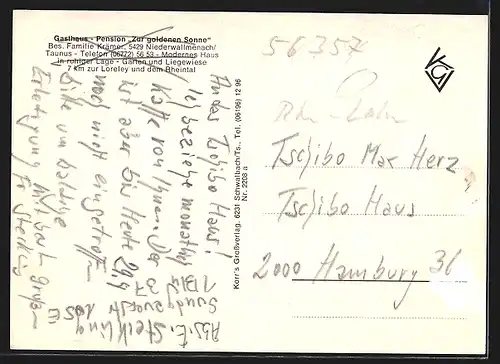 Gasthaus - Pension „Zur goldenen Sonne“
Bes. Familie Krämer, 5429 Niederwallmenach/
Taunus - Telefon (06772) 56 53 - Modernes Haus
in ruhiger Lage - Garten und Liegewiese
7 km zur Loreley und dem Rheintal
An das Tschibo Haus!
Ich beziehe monatlich
Kaffee von Ihnen. Der
ist aber bis Heute 29/4
noch nicht eingetroffen
Bitte um baldige
Erledigung Mit besten Grüßen
Fr Steckling
Abs. E. Steckling
Korr's Großverlag, 6231 Schwalbach/Ts., Tel. (06196) 12 96
Nr. 2208 a
56357
KGV
Tschibo Max Herz
Tschibo Haus
2000 Hamburg 36